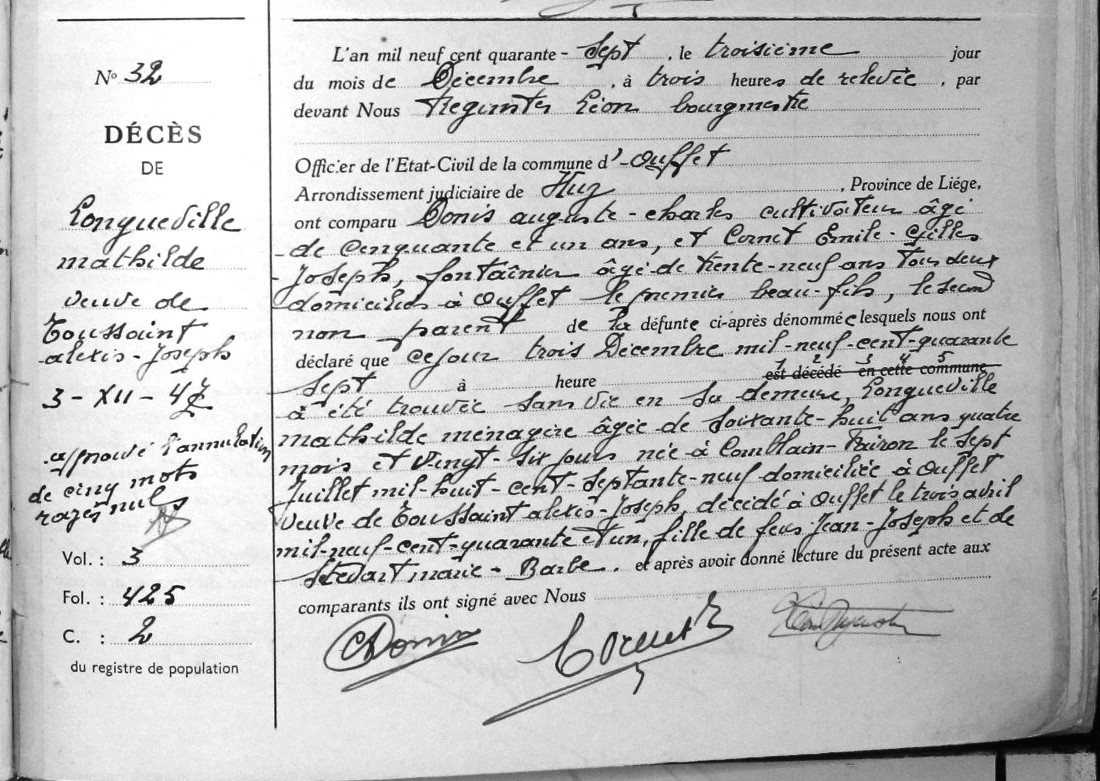 N° 32
DÉCÈS
DE
Longueville
mathilde
veuve de
Toussaint
alexis-Joseph
3-XII-47
approuvé l'annulation
de cinq mots
rayés nuls
Vol. : 3
Fol. : 425
C. : 2
du registre de population
L'an mil neuf cent quarante-Sept, le troisième jour
du mois de Décembre, à trois heures de relevée, par
devant Nous Léon bourgmestre
Officier de l'Etat-Civil de la commune d'-Ouffet
Arrondissement judiciaire de Huy, Province de Liége,
ont comparu Donis auguste-charles cultivateur âgé
de Cenquante et un ans, et Cornet Emile-Gilles
-Joseph, fontaînier âgé de trente-neuf ans tous deux
domiciliés à Ouffet le premier beau-fils, le second
non parent de la défunte ci-après dénommée lesquels nous ont
déclaré que ce jour trois Décembre mil-neuf-cent-quarante
1 2 3 4 5
Sept à heure est décédé en cette commune
a été trouvée sans vie en sa demeure, Longueville
mathilde ménagère âgée de soixante-huit ans quatre
mois et vingt-six jours née à Comblain-Fairon le sept
Juillet mil-huit-cent-septante-neuf domiciliée à Ouffet
veuve de Toussaint alexis-Joseph, décédé à Ouffet le trois avril
mil-neuf-cent-quarante et un, fille de feus Jean-Joseph et de
Stevart marie-Barbe. et après avoir donné lecture du présent acte aux
comparants ils ont signé avec Nous
Cornet